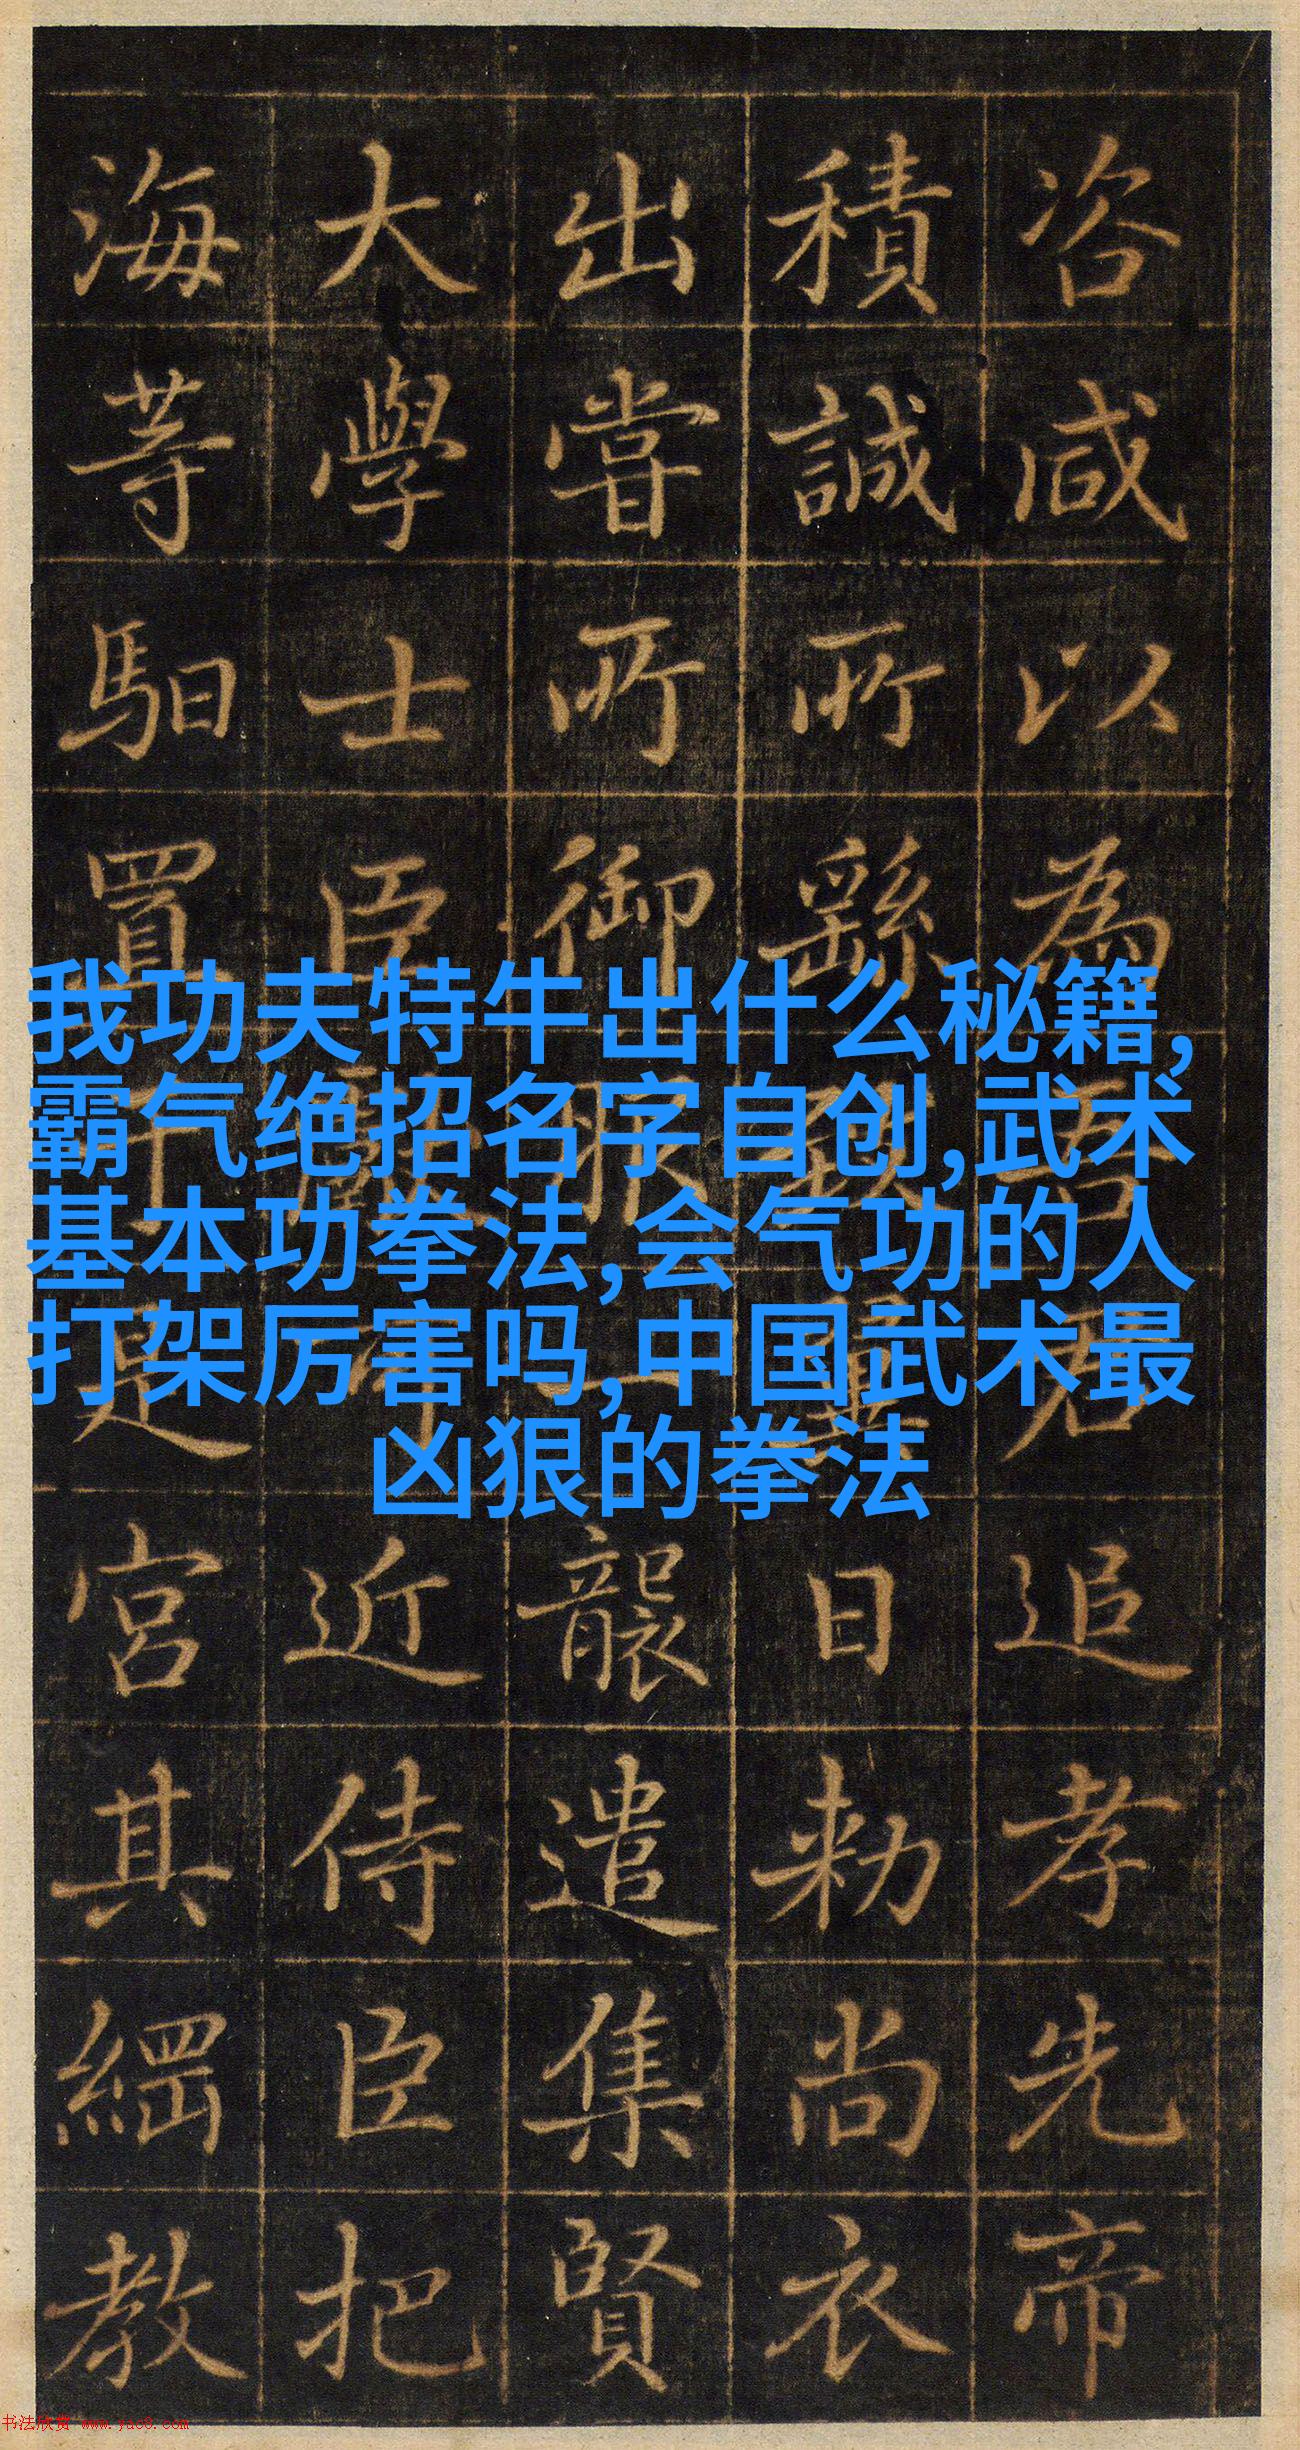 咨咸以為吾君追孝先帝
積誠所繇致日勑尚衣
出嘗所御服一襲遣集賢
大學士臣近侍臣把
海等馹置是宮其綱教
我功夫特牛出什么秘籍,
霸气绝招名字自创,武术
基本功拳法,会气功的人
打架厉害吗,中国武术最
凶狠的拳法
书法欣赏 www.yac8.com